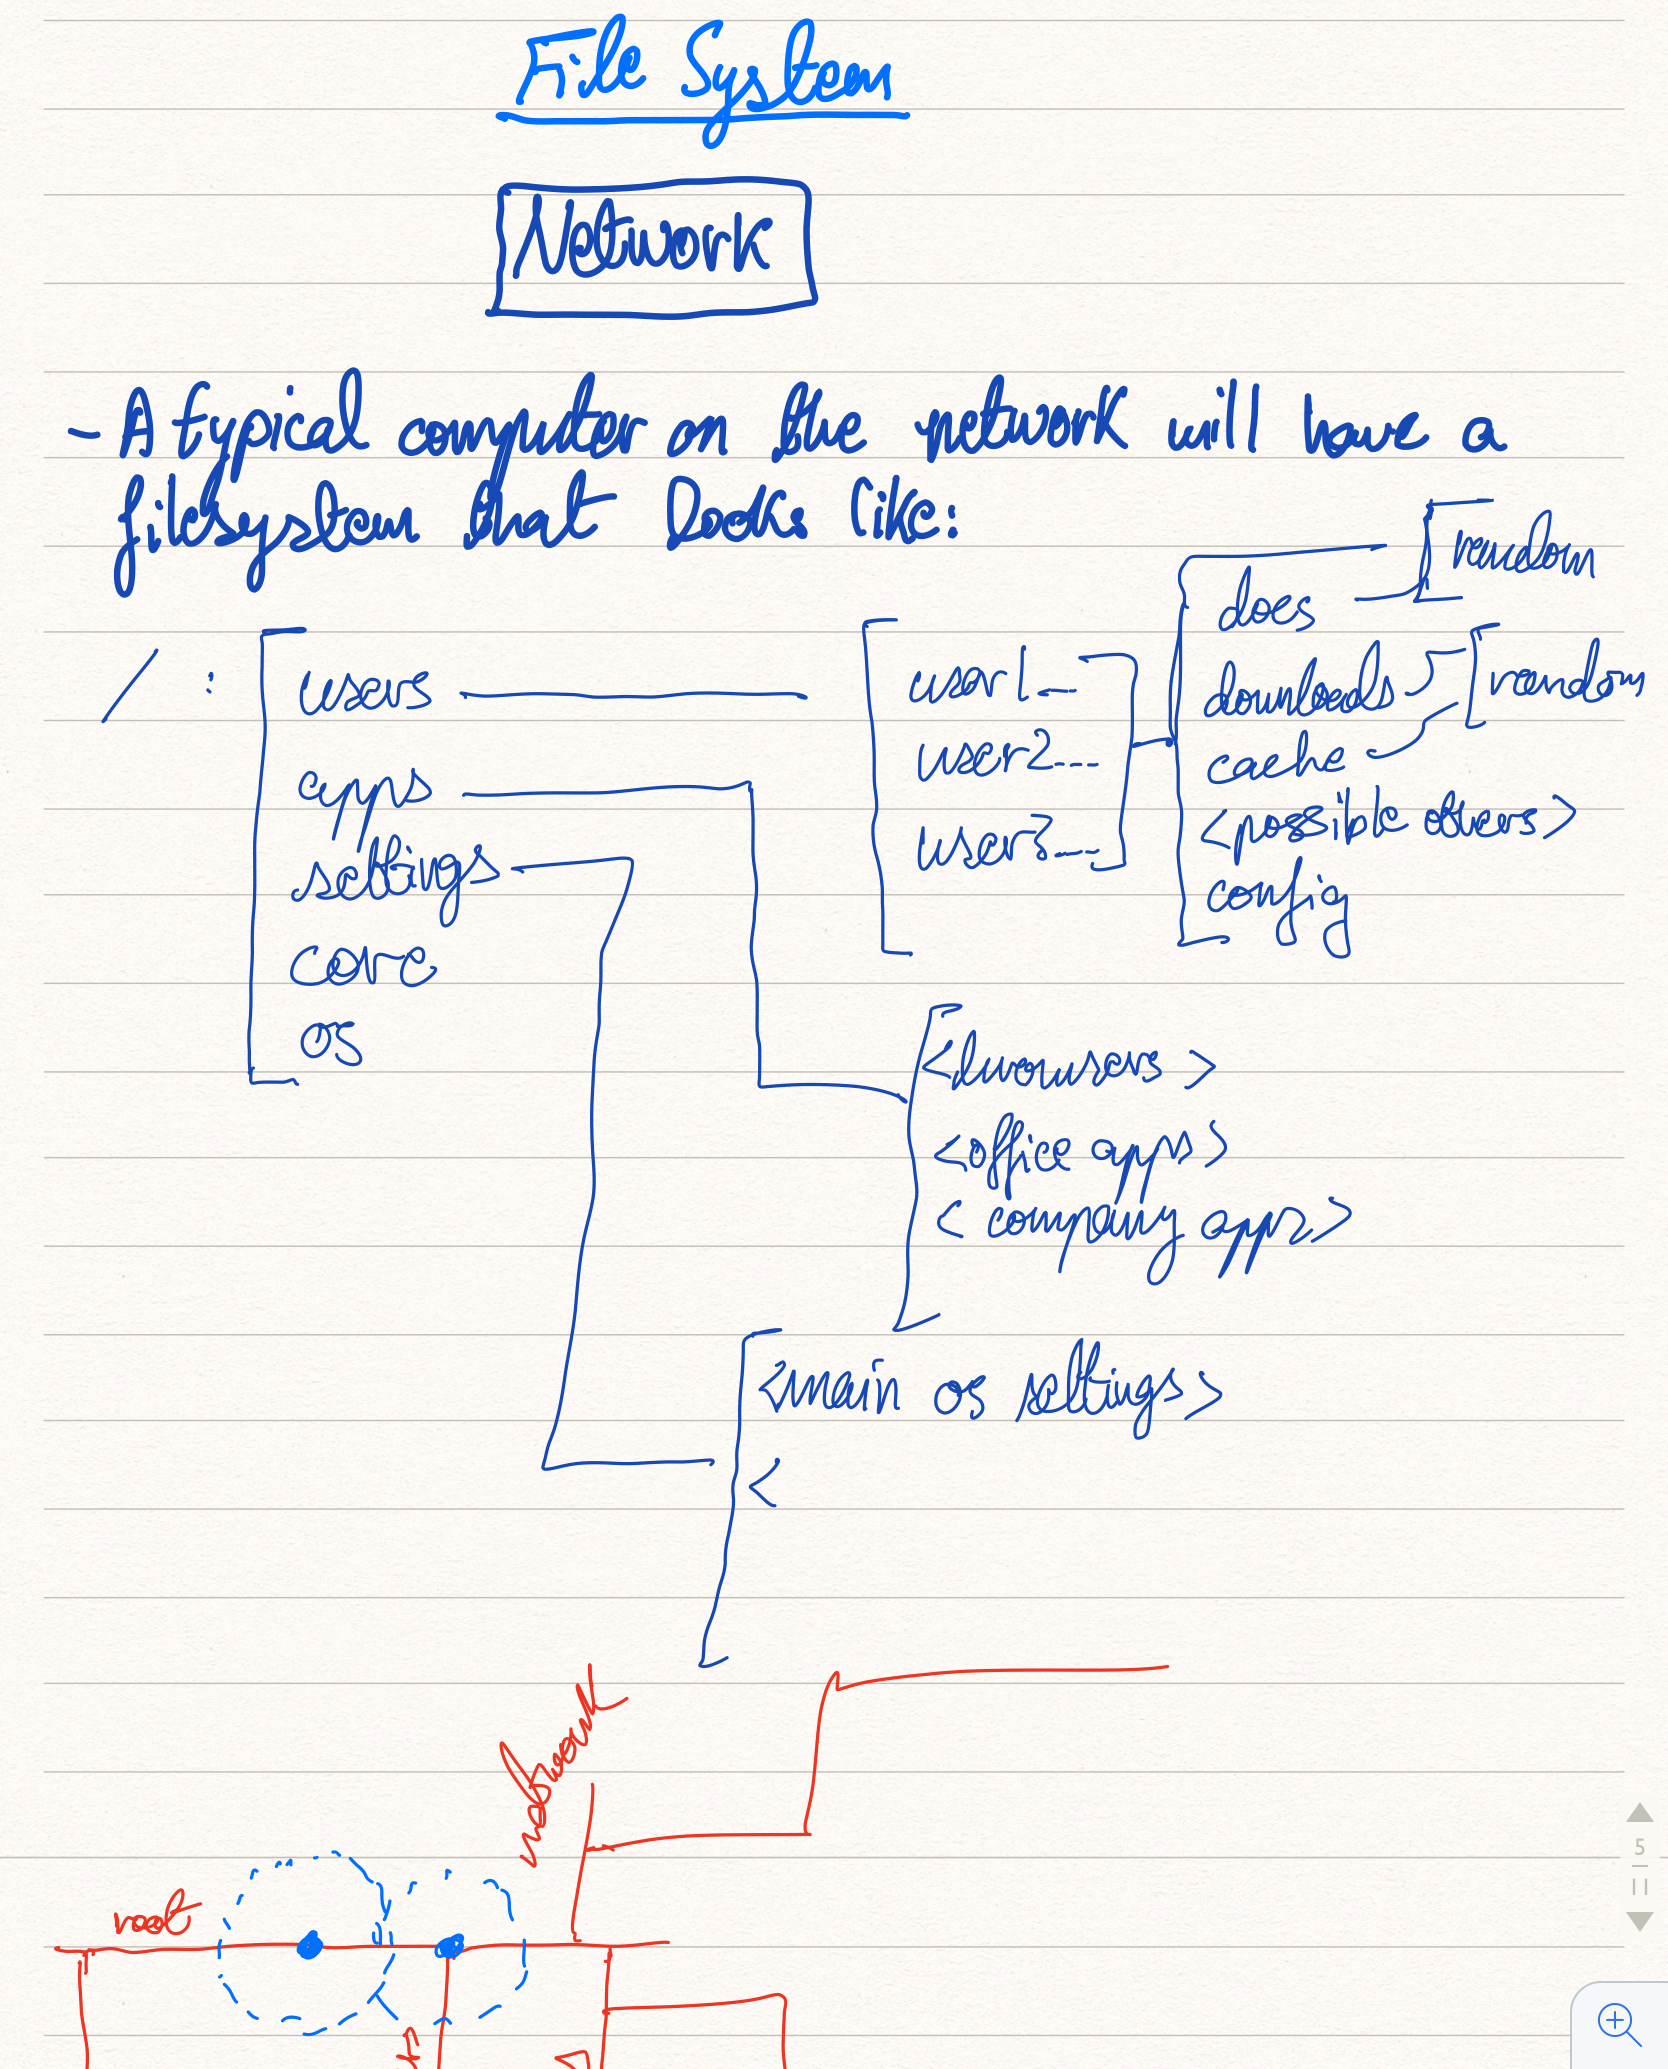 File System
Network
- A typical computer on the network will have a
filesystem that looks like:
/ :
users
apps
settings
core
os
user1...
user2...
user3...
docs
downloads
cache
<possible others>
config
random
random
<browsers>
<office apps>
<company apps>
<main os settings>
<
network
root
5
11